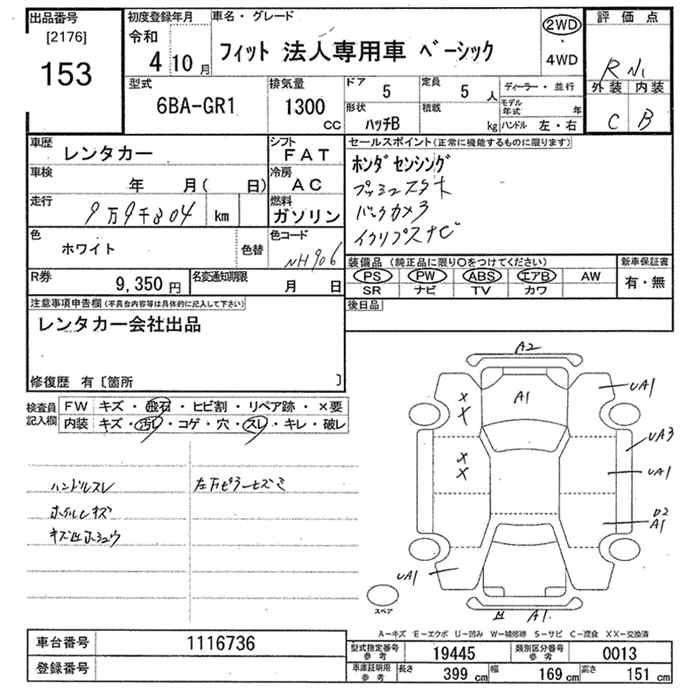 出品番号
[2176]
153
初度登録年月
令和
4 10月
車名・グレード
フィット 法人専用車 ベーシック
2WD
・
4WD
評価点
R
外装 内装
C B
型式
6BA-GR1
排気量
1300
CC
ドア
5
定員
5 人
形状
ハッチB
積載
kg
ディーラー・並行
モデル年式 年
ハンドル 左・右
車歴
レンタカー
シフト
FAT
車検
年 月( 日)
冷房
AC
走行
9万9千804 km
燃料
ガソリン
色
ホワイト
色替
色コード
NH906
R券
9,350円
名変通知期限
月 日
セールスポイント(正常に機能するものに限ります)
ホンダセンシング
プッシュスタート
バックカメラ
イクリプスナビ
装備品(純正品に限り○をつけてください)
新車保証書
PS PW ABS エアB AW
SR ナビ TV カワ
有・無
後日品
注意事項申告欄(不具合内容等は具体的に記入して下さい)
レンタカー会社出品
修復歴 有〔箇所 〕
検査員記入欄
FW キズ・飛石・ヒビ割・リペア跡・×要
内装 キズ・汚れ・コゲ・穴・スレ・キレ・破レ
ハンドルスレ
ホイルキズ
左
A2
A1
UA1
UA3
UA1
D2
A1
UA1
A1
X
X
X
X
スペア
A-キズ E-エクボ U-凹み W-補修跡 S-サビ C-腐食 XX-交換済
車台番号
1116736
登録番号
型式指定番号
参考
19445
類別区分番号
参考
0013
車庫証明用
参考
長さ
399 cm
幅
169 cm
高さ
151 cm